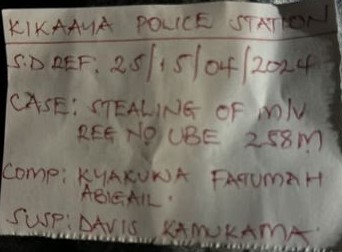 KIKAAYA POLICE STATION
S.D REF: 25/15/04/2024
CASE: STEALING OF M/V
REG NO UBE 258M
COMP: KYAKUWA FATUMAH
ABIGAIL.
SUSP: DAVIS KAMUKAMA.